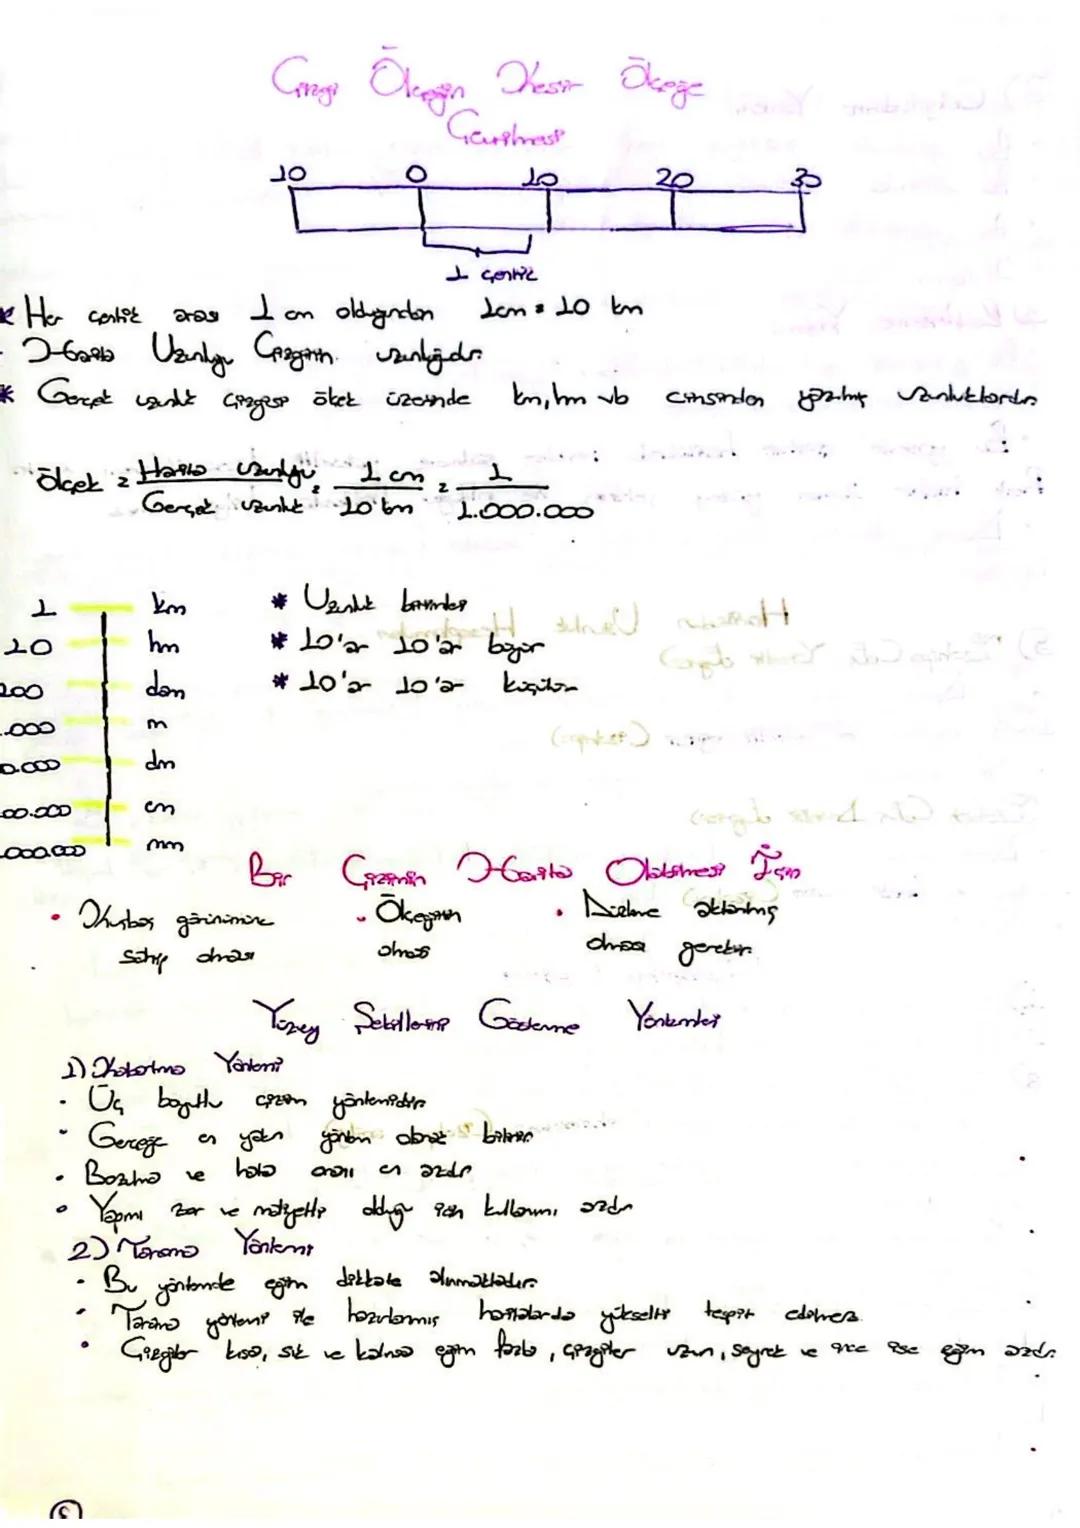 Çizgi Ölçeğin Kesir Ölçeğe
Çevrilmesi
10 0 10 20 30
1 çentik
* Her çentik arası 1 cm olduğundan 1cm = 10 km
- Harita Uzunluğu Çizginin uzunluğudur.
* Gerçek uzunluk çizgisi ölçek üzerinde km, hm vb cinsinden yazılmış uzunluklardır.
Ölçek = Harita uzunluğu / Gerçek uzunluk = 1 cm / 10 km = 1 / 1.000.000
1 km
10 hm
100 dam
1.000 m
0.000 dm
00.000 cm
.000.000 mm
* Uzunluk birimleri
* 10'ar 10'ar büyür
* 10'ar 10'ar küçülür
Bir Çizimin Harita Olabilmesi İçin
• Kuşbakışı görünümüne sahip olması
• Ölçeğinin olması
• Düzleme aktarılmış olması gerekir.
Yüzey Şekillerini Gösterme Yöntemleri
1) Kabartma Yöntemi
• Üç boyutlu çizim yöntemidir
• Gerçeğe en yakın yöntem olarak bilinir
• Bozulma ve hata oranı en azdır
• Yapımı zor ve maliyetli olduğu için kullanımı azdır
2) Tarama Yöntemi
• Bu yöntemde eğim dikkate alınmaktadır.
• Tarama yöntemi ile hazırlanmış haritalarda yükselti tespit edilmez.
• Çizgiler kısa, sık ve kalınsa eğim fazla, çizgiler uzun, seyrek ve ince ise eğim azdır.